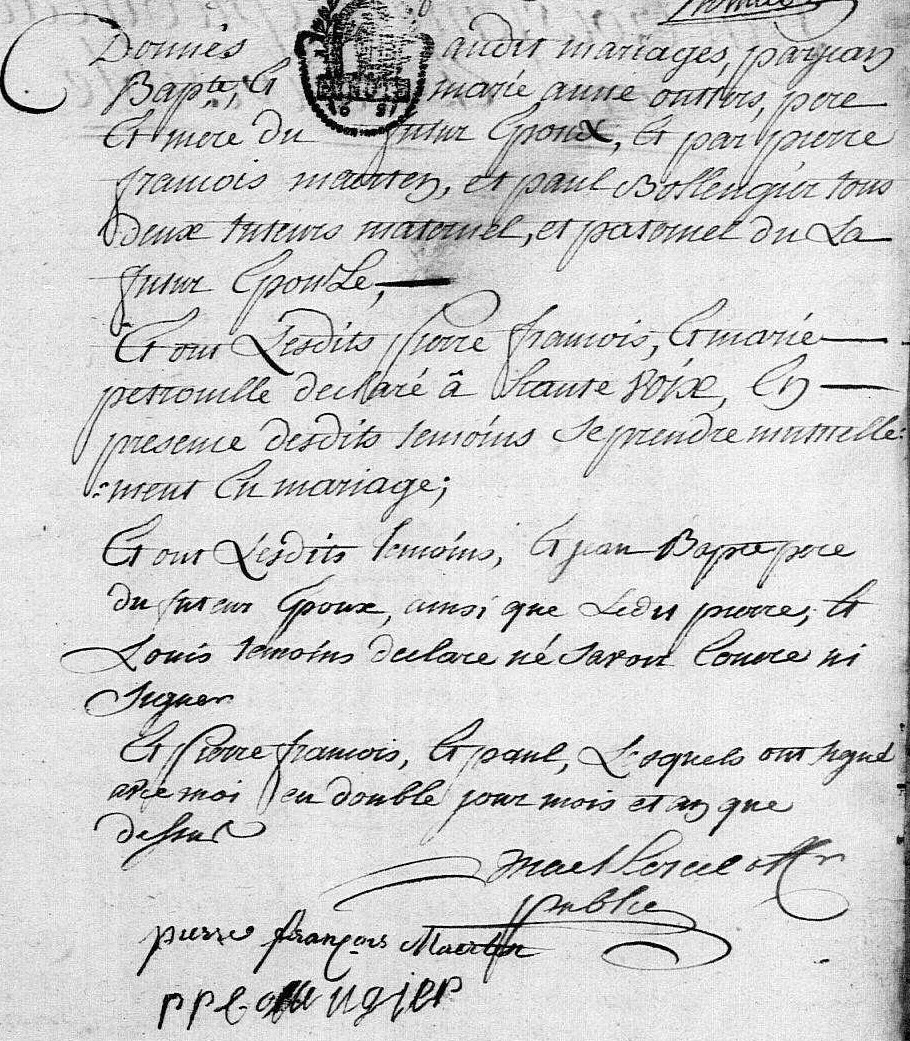 Donnés audit mariages, par jean
Bapte, et marie anne outters, pere
Et mere du futur Epoux, et par pierre
francois maerten, et paul Bollengier tous
deux tuteurs maternel, et paternel du La
futur Epouse,
Et ont Lesdits Pierre francois, Et marie
petronille declaré â haute voix, En
presence desdits temoins se prendre mutuelle:
:ment En mariage;
Et ont Lesdits temoins, Et jean Bapte pere
du futeur Epoux, ainsi que Ledit pierre, Et
Louis temoins declare né savoir Ecrire ni
Signer
Et Pierre francois, Et paul, Lesquels ont signé
avec moi en double jour mois et an que
dessus
off.r
public
pierre françois Maerten